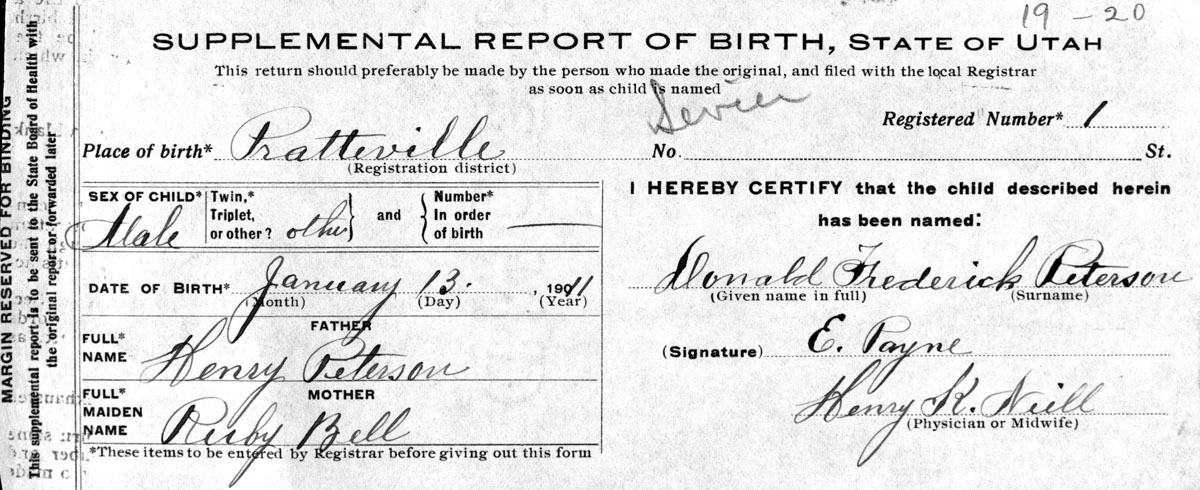 19-20
SUPPLEMENTAL REPORT OF BIRTH, STATE OF UTAH
This return should preferably be made by the person who made the original, and filed with the local Registrar
as soon as child is named
Sevier
Registered Number* 1
Place of birth* Pratteville No. St.
(Registration district)
SEX OF CHILD* Male
Twin,* Triplet, or other? other and Number* In order of birth
DATE OF BIRTH* January 13. , 1911
(Month) (Day) (Year)
FATHER
FULL* NAME Henry Peterson
MOTHER
FULL* MAIDEN NAME Ruby Bell
*These items to be entered by Registrar before giving out this form
I HEREBY CERTIFY that the child described herein
has been named:
Donald Frederick Peterson
(Given name in full) (Surname)
(Signature) E. Payne
Henry K. Neill
(Physician or Midwife)
MARGIN RESERVED FOR BINDING
This supplemental report is to be sent to the State Board of Health with
the original report or forwarded later